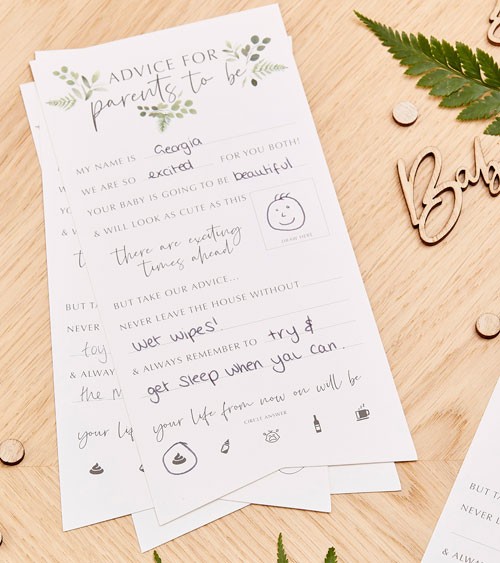 ADVICE FOR
parents to be
MY NAME IS Georgia
WE ARE SO excited FOR YOU BOTH!
YOUR BABY IS GOING TO BE beautiful
& WILL LOOK AS CUTE AS THIS
DRAW HERE
there are exciting
times ahead
BUT TAKE OUR ADVICE...
NEVER LEAVE THE HOUSE WITHOUT
wet wipes!
& ALWAYS REMEMBER TO try &
get sleep when you can.
your life from now on will be
CIRCLE ANSWER
BUT TA
NEVER
toy
& ALWA
the m
your li
Baby
BUT TAK
NEVER L
& ALWAY